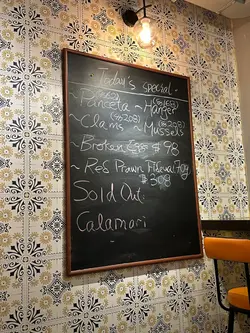 Today's special
~Panceta ~ Hanger
~Clams ~ Mussels
($208) ($208)
~Broken Eggs $98
~Red Prawn Fideua
$308
Sold Out:
Calamari